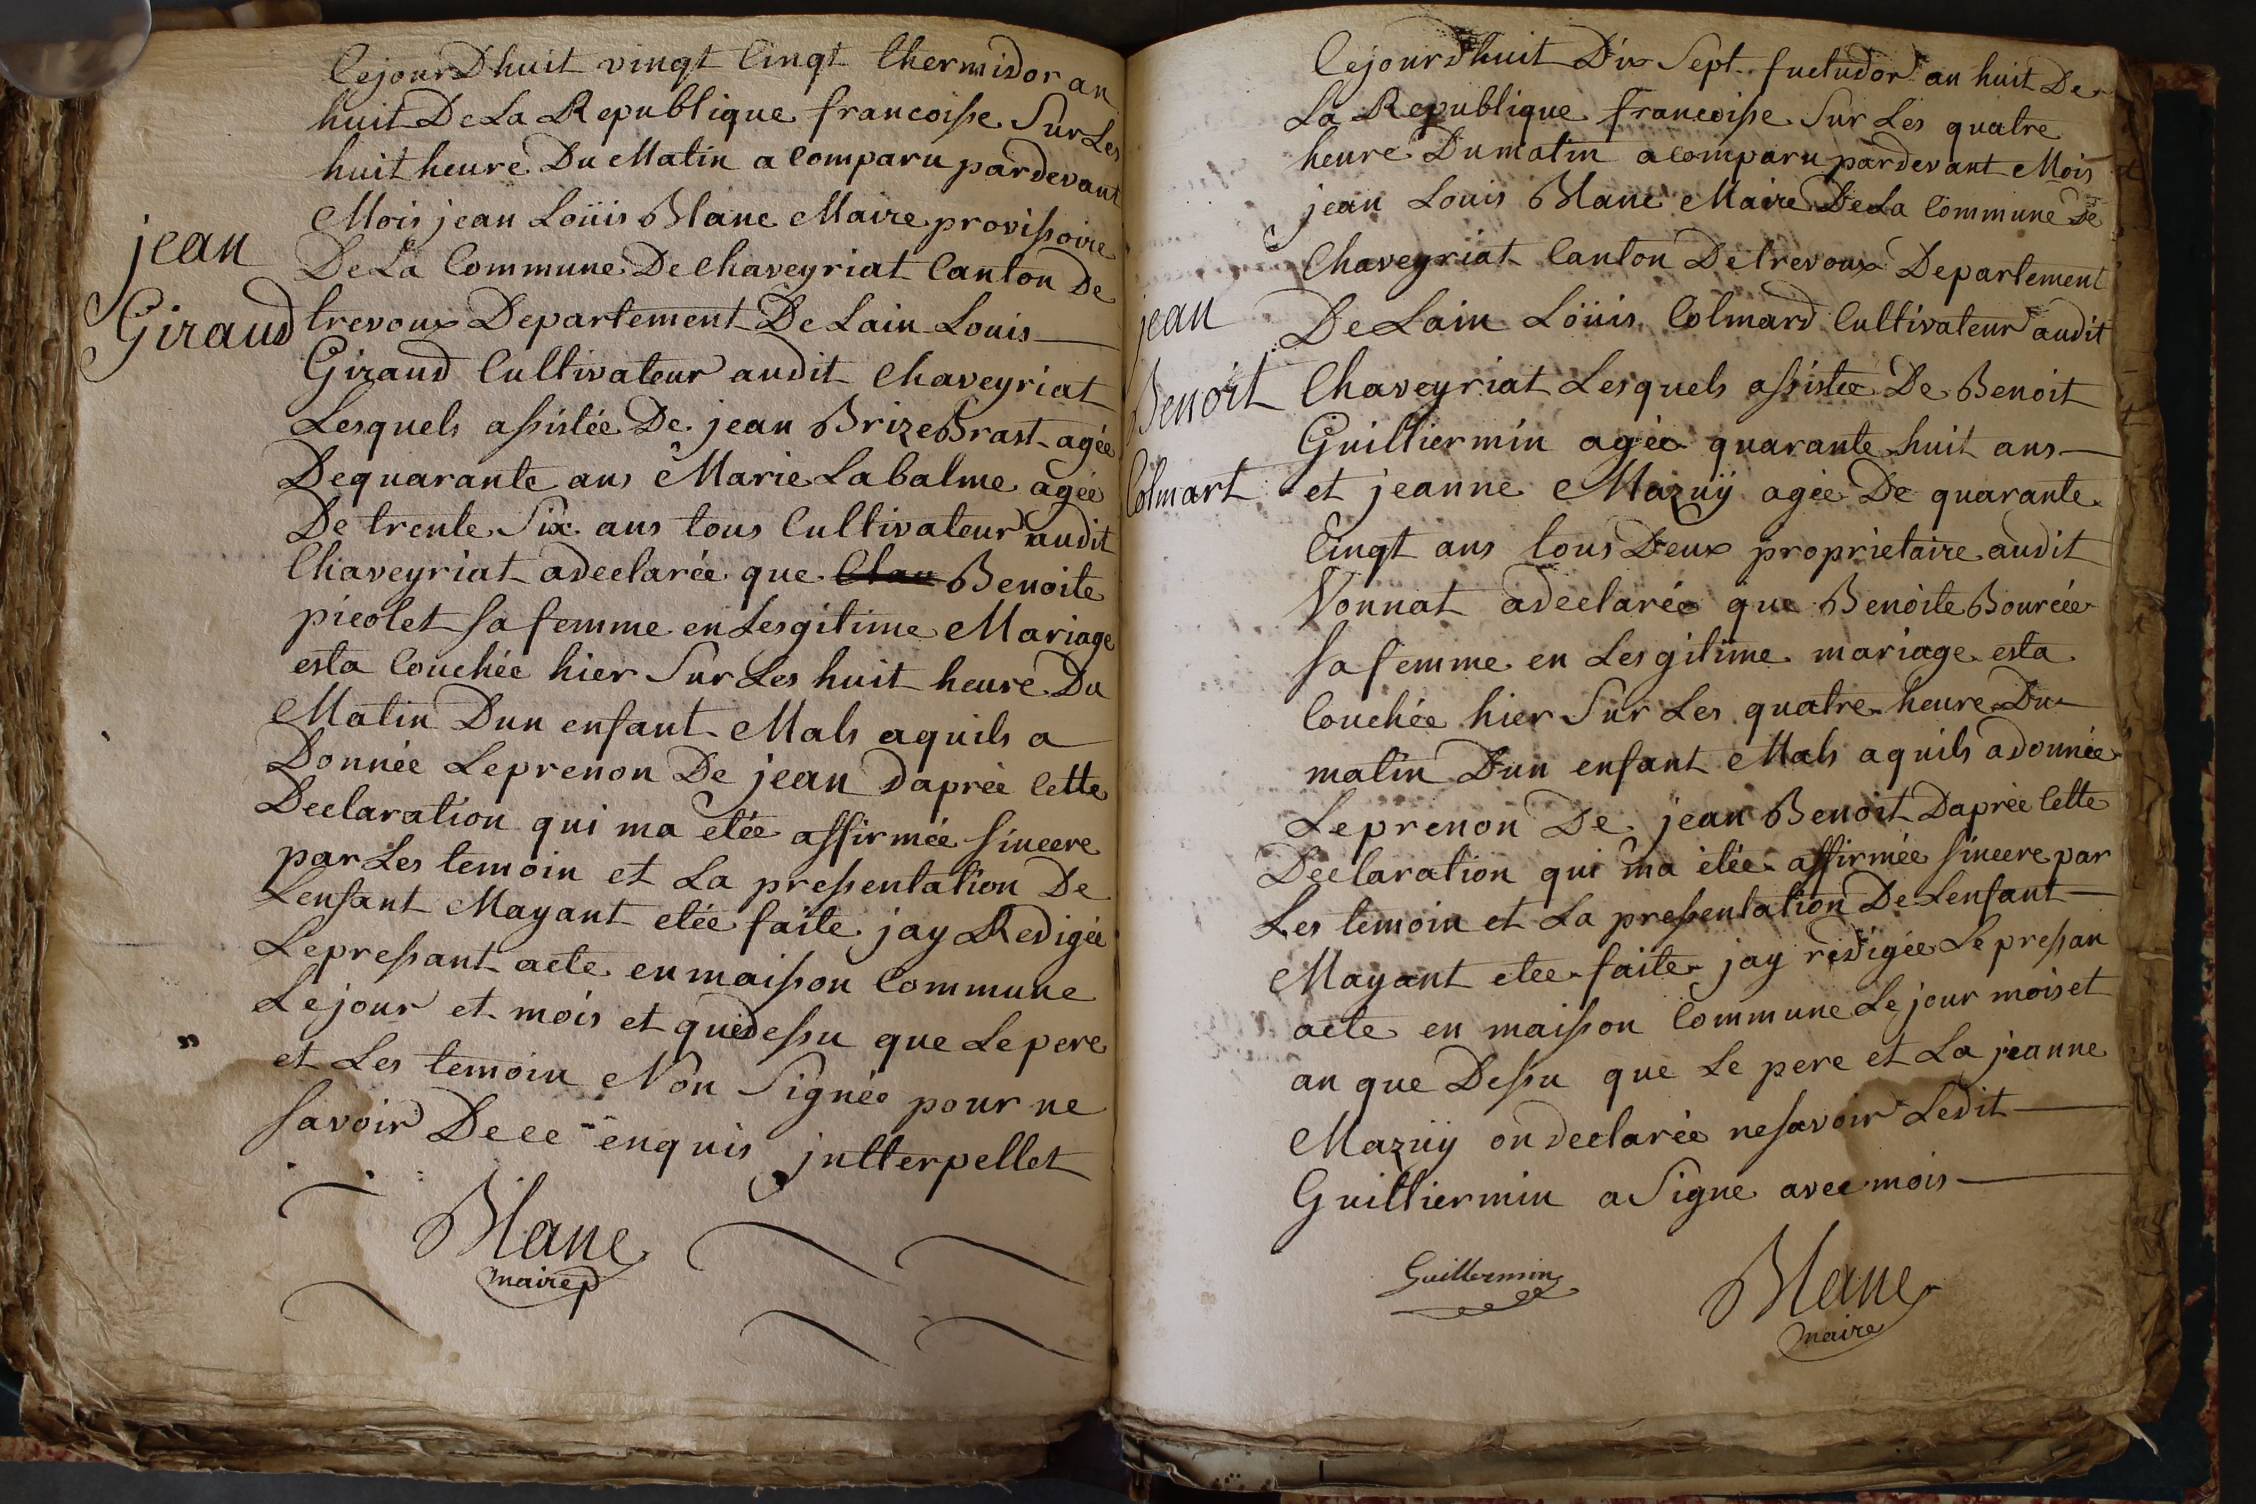 Cejourdhuit vingt Cinqt thermidor an
huit De La Republique francoisse Sur Les
huit heure Du Matin a Comparu pardevant
Mois jean Loüis Blanc Maire provissoire
De La Commune De Chaveyriat Canton De
trevoux Departement De Lain Louis
Giraud Cultivateur audit Chaveyriat
Lesquels assistée De jean Brize Brast agée
De quarante ans Marie Labalme agée
De trente Six ans tous Cultivateur audit
Chaveyriat a declarée que Benoite
picolet sa femme en Lesgitime Mariage
esta Couchée hier Sur Les huit heure Du
Matin Dun enfant Mals aquils a
Donnée Leprenon De jean Daprée Cette
Declaration qui ma etée affirmée sincere
par Les temoin et La pressentation De
Lenfant Mayant etée faite jay Redigée
Lepressant acte en maisson Commune
Le jour et mois et que dessu que Le pere
et Les temoin Non Signée pour ne
savoir De ce enquis jntterpellet
Blanc
maire p
jean
Giraud
Cejourdhuit Dix Sept fuctudor an huit De
La Republique francoisse Sur Les quatre
heure Du matin a comparu pardevant Mois
jean Louis Blanc Maire De La Commune De
Chaveyriat Canton De trevoux Departement
De Lain Loüis Colmard Cultivateur audit
Chaveyriat Lesquels assistee De Benoit
Guilliermin agée quarante huit ans
et jeanne Mazuÿ agée De quarante
Cinqt ans tous Deux proprietaire audit
Vonnat a declarée que Benoite Bourcée
sa femme en Lesgitime mariage esta
Couchée hier Sur Les quatre heure Du
matin Dun enfant Mals aquils a donnée
Leprenon De jean Benoit Daprée Cette
Declaration qui ma etée affirmée sincere par
Les temoin et La pressentation De Lenfant
Mayant etee faite jay redigée Le pressan
acte en maisson Commune Le jour mois et
an que Dessu que Le pere et La jeanne
Mazuÿ on declarée ne savoir Ledit
Guilliermin a Signe avec mois
Guillermin
Blanc
maire
jean
Benoit
Colmart